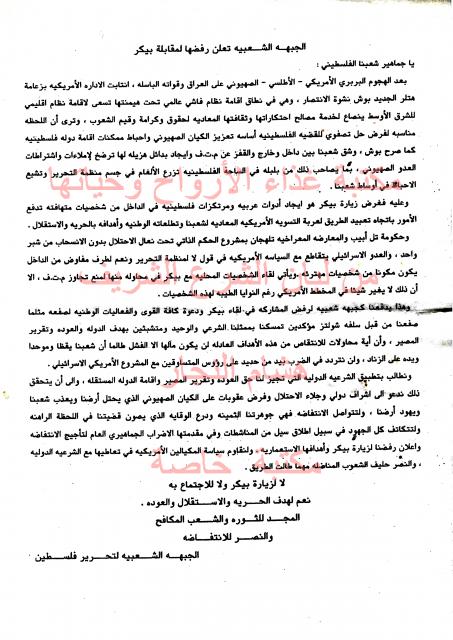 الجبهه الشعبيه تعلن رفضها لمقابلة بيكر
يا جماهير شعبنا الفلسطيني :
بعد الهجوم البربري الأمريكي - الأطلسي - الصهيوني على العراق وقواته الباسله ، انتابت الاداره الأمريكيه بزعامة
هتلر الجديد بوش نشوة الانتصار ، وهي في نطاق اقامة نظام فاشي عالمي تحت هيمنتها تسعى لاقامة نظام اقليمي
للشرق الأوسط ينصاع لخدمة مصالح احتكاراتها وثقافتها المعاديه لحقوق وكرامة وقيم الشعوب ، وترى أن اللحظه
مناسبه لفرض حل تصفوي للقضيه الفلسطينيه أساسه تعزيز الكيان الصهيوني واحباط ممكنات اقامة دوله فلسطينيه
كما صرح بوش ، وشق شعبنا بين داخل وخارج والقفز عن م.ت.ف وايجاد بدائل هزيله لها ترضخ لإملاءات واشتراطات
العدو الصهيوني . بما يصاحب ذلك من بلبله في الساحة الفلسطينيه تزرع الألغام في جسم منظمة التحرير وتشيع
الاحباط في أوساط شعبنا .
وعليه فغرض زيارة بيكر هو ايجاد أدوات عربيه ومرتكزات فلسطينيه في الداخل من شخصيات متهافته تدفع
الأمور باتجاه تعبيد الطريق لعربة التسويه الأمريكيه المعاديه لشعبنا وتطلعاته الوطنيه وأهدافه بالحريه والاستقلال .
وحكومة تل أبيب والمعارضه العماليه تلهجان بمشروع الحكم الذاتي تحت نعال الاحتلال بدون الانسحاب من شبر
واحد ، والعدو الاسرائيلي يتقاطع مع السياسه الأمريكيه في قول لا لمنظمة التحرير ونعم لطرف مفاوض من الداخل
يكون مكونا من شخصيات مهترئه .ويأتي لقاء الشخصيات المحليه مع بيكر في محاوله منها لمنع تجاوز م.ت.ف ، الا
أن ذلك لا يغير شيئا في المخطط الأمريكي رغم النوايا الطيبه لهذه الشخصيات .
وهذا يدفعنا كجبهه شعبيه لرفض المشاركه في لقاء بيكر ودعوة كافة القوى والفعاليات الوطنيه لصفعه مثلما
صفعنا من قبل سلفه شولتز مؤكدين تمسكنا بممثلنا الشرعي والوحيد ومتشبثين بهدف الدوله والعوده وتقرير
المصير ، وأن أية محاولات للانتقاص من هذه الأهداف العادله لن يكون مآلها الا الفشل طالما أن شعبنا يقظا وموحدا
ويده على الزناد ، ولن نتردد في الضرب بيد من حديد على رؤوس المتساوقين مع المشروع الأمريكي الاسرائيلي .
ونطالب بتطبيق الشرعيه الدوليه التي تجيز لنا حق العوده وتقرير المصير واقامة الدوله المستقله ، والى أن يتحقق
ذلك ندعو الى اشراف دولي وجلاء الاحتلال وفرض عقوبات على الكيان الصهيوني الذي يحتل أرضنا ويعذب شعبنا
ويهود أرضنا ، ولتتواصل الانتفاضه فهي جوهرتنا الثمينه ودرع الوقايه الذي يصون قضيتنا في اللحظة الراهنه
ولتتكاتف كل الجهود في سبيل اطلاق سيل من المناشطات وفي مقدمتها الاضراب الجماهيري العام لتأجيج الانتفاضه
واعلان رفضنا لزيارة بيكر وأهدافها الاستعماريه ، ولنقاوم سياسة المكيالين الأمريكيه في تعاطيها مع الشرعيه الدوليه
، والنصر حليف الشعوب المناضله مهما طالت الطريق .
لا لزيارة بيكر ولا للاجتماع به
نعم لهدف الحريه والاستقلال والعوده .
المجد للثوره والشعب المكافح
والنصر للانتفاضه
الجبهه الشعبيه لتحرير فلسطين
مكتبة غذاء الأرواح وحياتها
هشام النجار
مكتبة خاصة